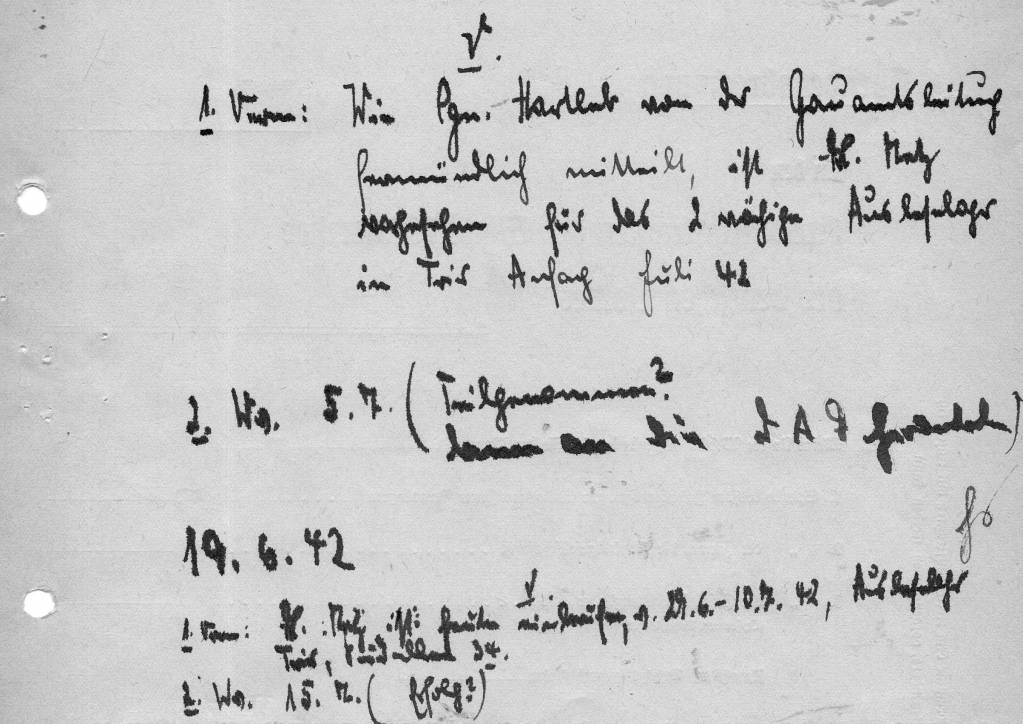 V.
1. Verm: Wie Pgn. Hartleb von der Gauamtsleitung
fernmündlich mitteilt, ist H. Metz
vorgesehen für das 2 wöchige Ausleselager
in Trier Anfang Juli 42
2. Wv. 5.7. (Teilgenommen?
dann an die D A F)
19.6.42
V.
1. Verm: H. Metz ist heute einberufen, v. 29.6.-10.7.42, Ausleselager
Trier, 34.
2. Wv. 15.7. (Erfolg?)